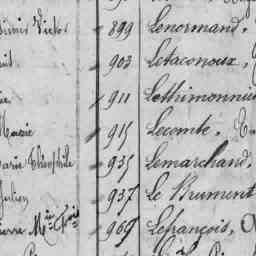 Victor 899 Lenormand,
903 Letaconoux,
911 Lethimonnier
Marie 915 Lecomte,
Marie Théophile 935 Lemarchand,
Julien 937 Le Brument
Pierre Mie Fois 969 Lefrançois,